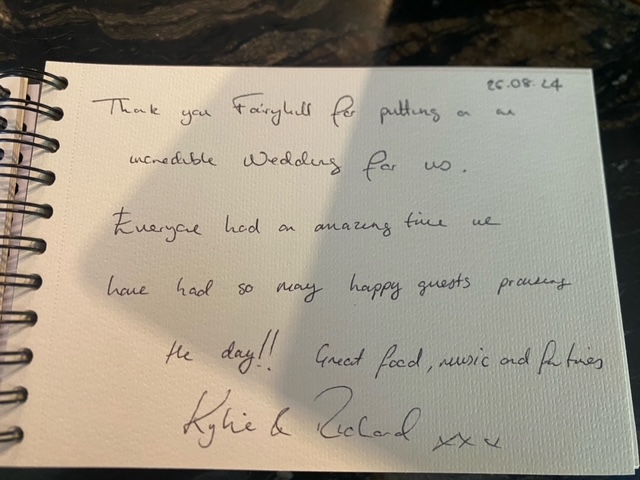 26.08.24
Thank you Fairyhill for putting on an
incredible Wedding for us.
Everyone had an amazing time we
have had so many happy guests praising
the day!! Great food, music and fun times
Kylie & Richard xxx